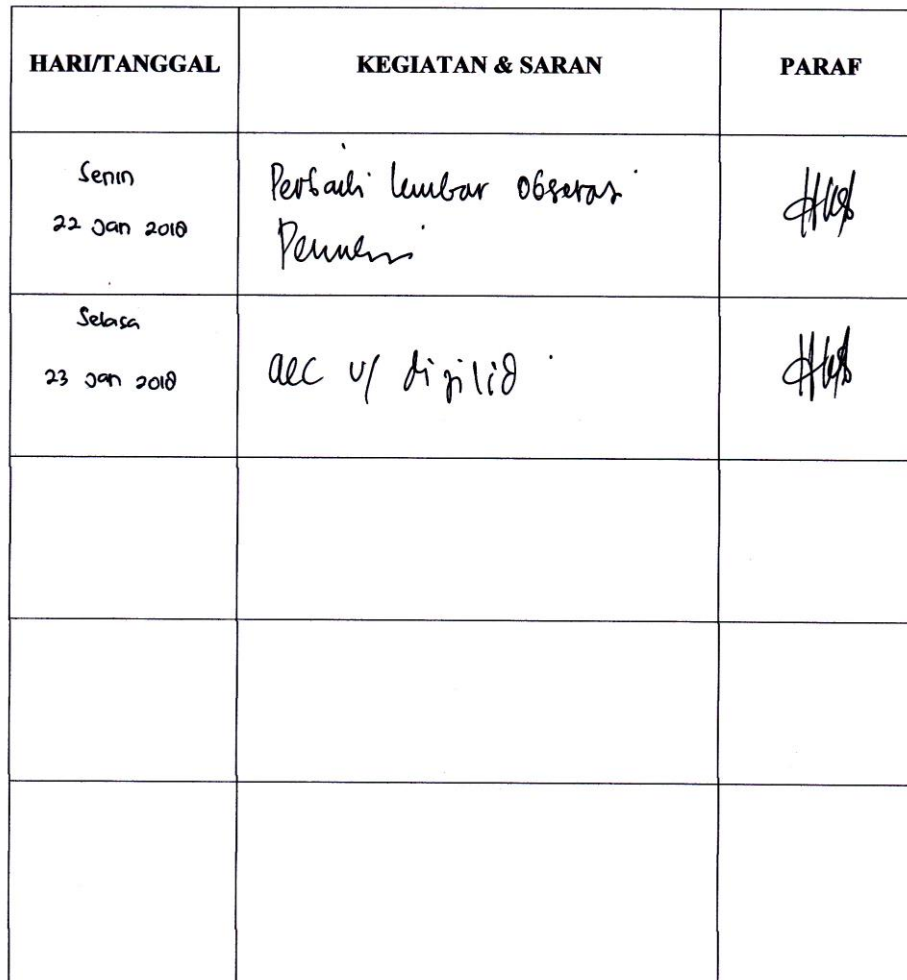 HARI/TANGGAL KEGIATAN & SARAN PARAF
Senin
22 Jan 2018
Perbaiki lembar obserasi
Selasa
23 Jan 2018
acc u/ dijilid